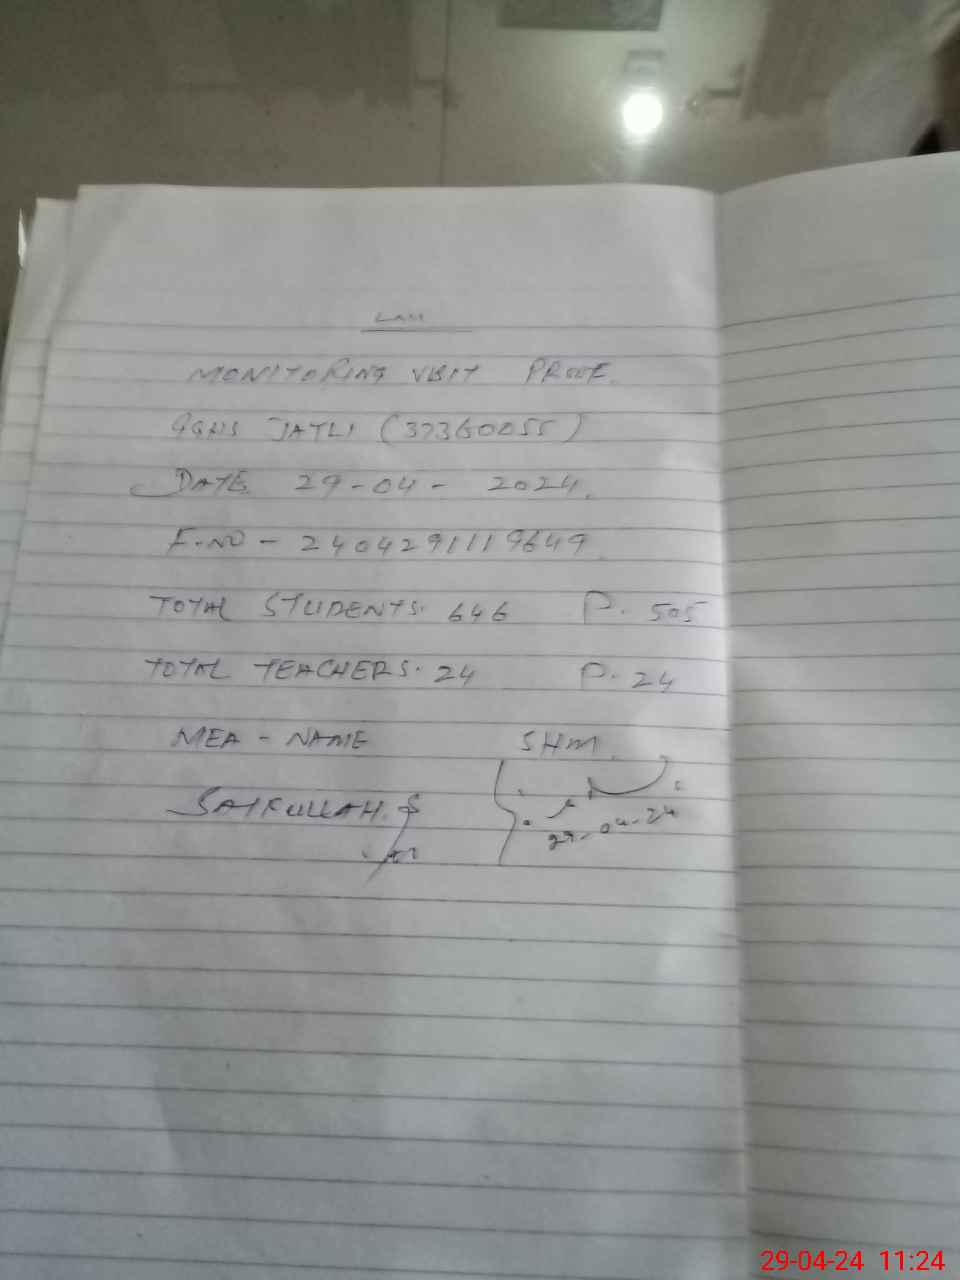 MONITORING VISIT PROOF.
GGHS JATLI (37360055)
DATE 29-04-2024.
F.NO - 2404291119649
TOTAL STUDENTS. 646 P. 505
TOTAL TEACHERS. 24 P. 24
MEA - NAME SHM.
SAIFULLAH.
29-04-24
29-04-24 11:24